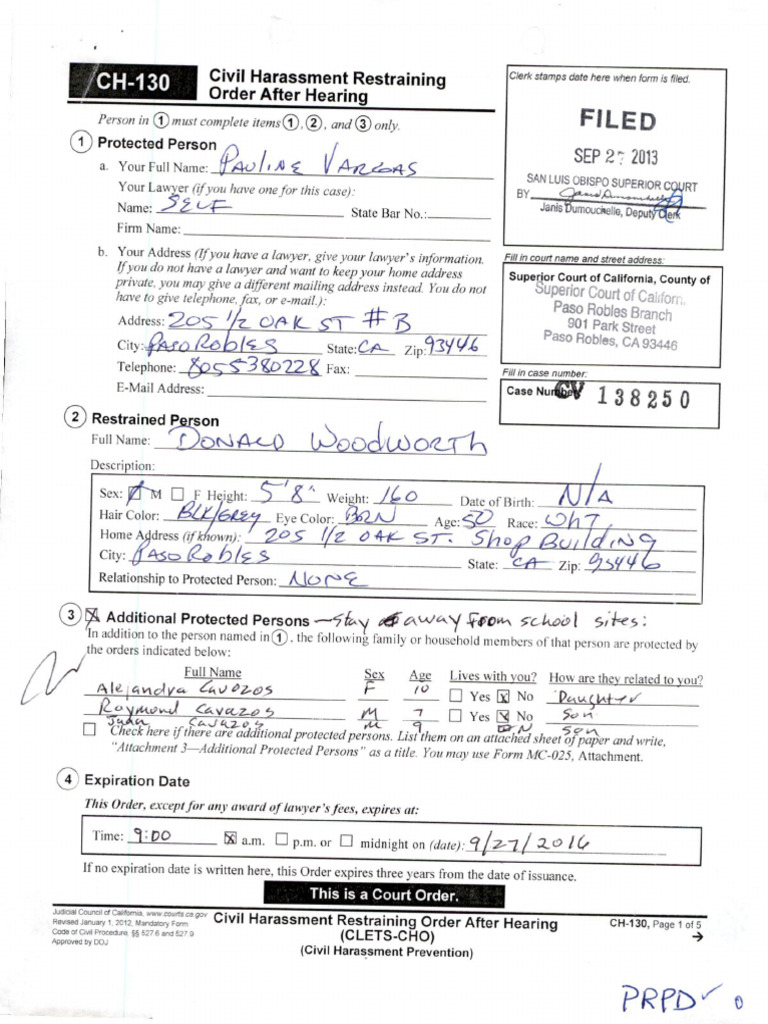 CH-130
Civil Harassment Restraining
Order After Hearing
Person in ① must complete items ①, ②, and ③ only.
Clerk stamps date here when form is filed.
FILED
SEP 27 2013
SAN LUIS OBISPO SUPERIOR COURT
BY
Janis Dumouchelle, Deputy Clerk
① Protected Person
a. Your Full Name: PAULINE VARGAS
Your Lawyer (if you have one for this case):
Name: SELF State Bar No.:
Firm Name:
b. Your Address (If you have a lawyer, give your lawyer's information.
If you do not have a lawyer and want to keep your home address
private, you may give a different mailing address instead. You do not
have to give telephone, fax, or e-mail.):
Address: 205 1/2 OAK ST #B
City: PASO ROBLES State: CA Zip: 93446
Telephone: 8055380228 Fax:
E-Mail Address:
Fill in court name and street address:
Superior Court of California, County of
Superior Court of Californ
Paso Robles Branch
901 Park Street
Paso Robles, CA 93446
Fill in case number:
Case Number: CV 138250
② Restrained Person
Full Name: DONALD WOODWORTH
Description:
Sex: M F Height: 5'8" Weight: 160 Date of Birth: N/A
Hair Color: BLK/GREY Eye Color: BRN Age: 50 Race: WHT
Home Address (if known): 205 1/2 OAK ST. Shop BUILDING
City: PASO ROBLES State: CA Zip: 93446
Relationship to Protected Person: NONE
③ Additional Protected Persons – stay away from school sites:
In addition to the person named in ①, the following family or household members of that person are protected by
the orders indicated below:
Full Name Sex Age Lives with you? How are they related to you?
Alejandra Cavazos F 10 Yes No Daughter
Raymond Cavazos M 7 Yes No Son
Juan Cavazos M 9 No Son
Check here if there are additional protected persons. List them on an attached sheet of paper and write,
"Attachment 3—Additional Protected Persons" as a title. You may use Form MC-025, Attachment.
④ Expiration Date
This Order, except for any award of lawyer's fees, expires at:
Time: 9:00 a.m. p.m. or midnight on (date): 9/27/2016
If no expiration date is written here, this Order expires three years from the date of issuance.
This is a Court Order.
Judicial Council of California, www.courts.ca.gov
Revised January 1, 2012, Mandatory Form
Code of Civil Procedure, §§ 527.6 and 527.9
Approved by DOJ
Civil Harassment Restraining Order After Hearing
(CLETS-CHO)
(Civil Harassment Prevention)
CH-130, Page 1 of 5
→
PRPD ✓